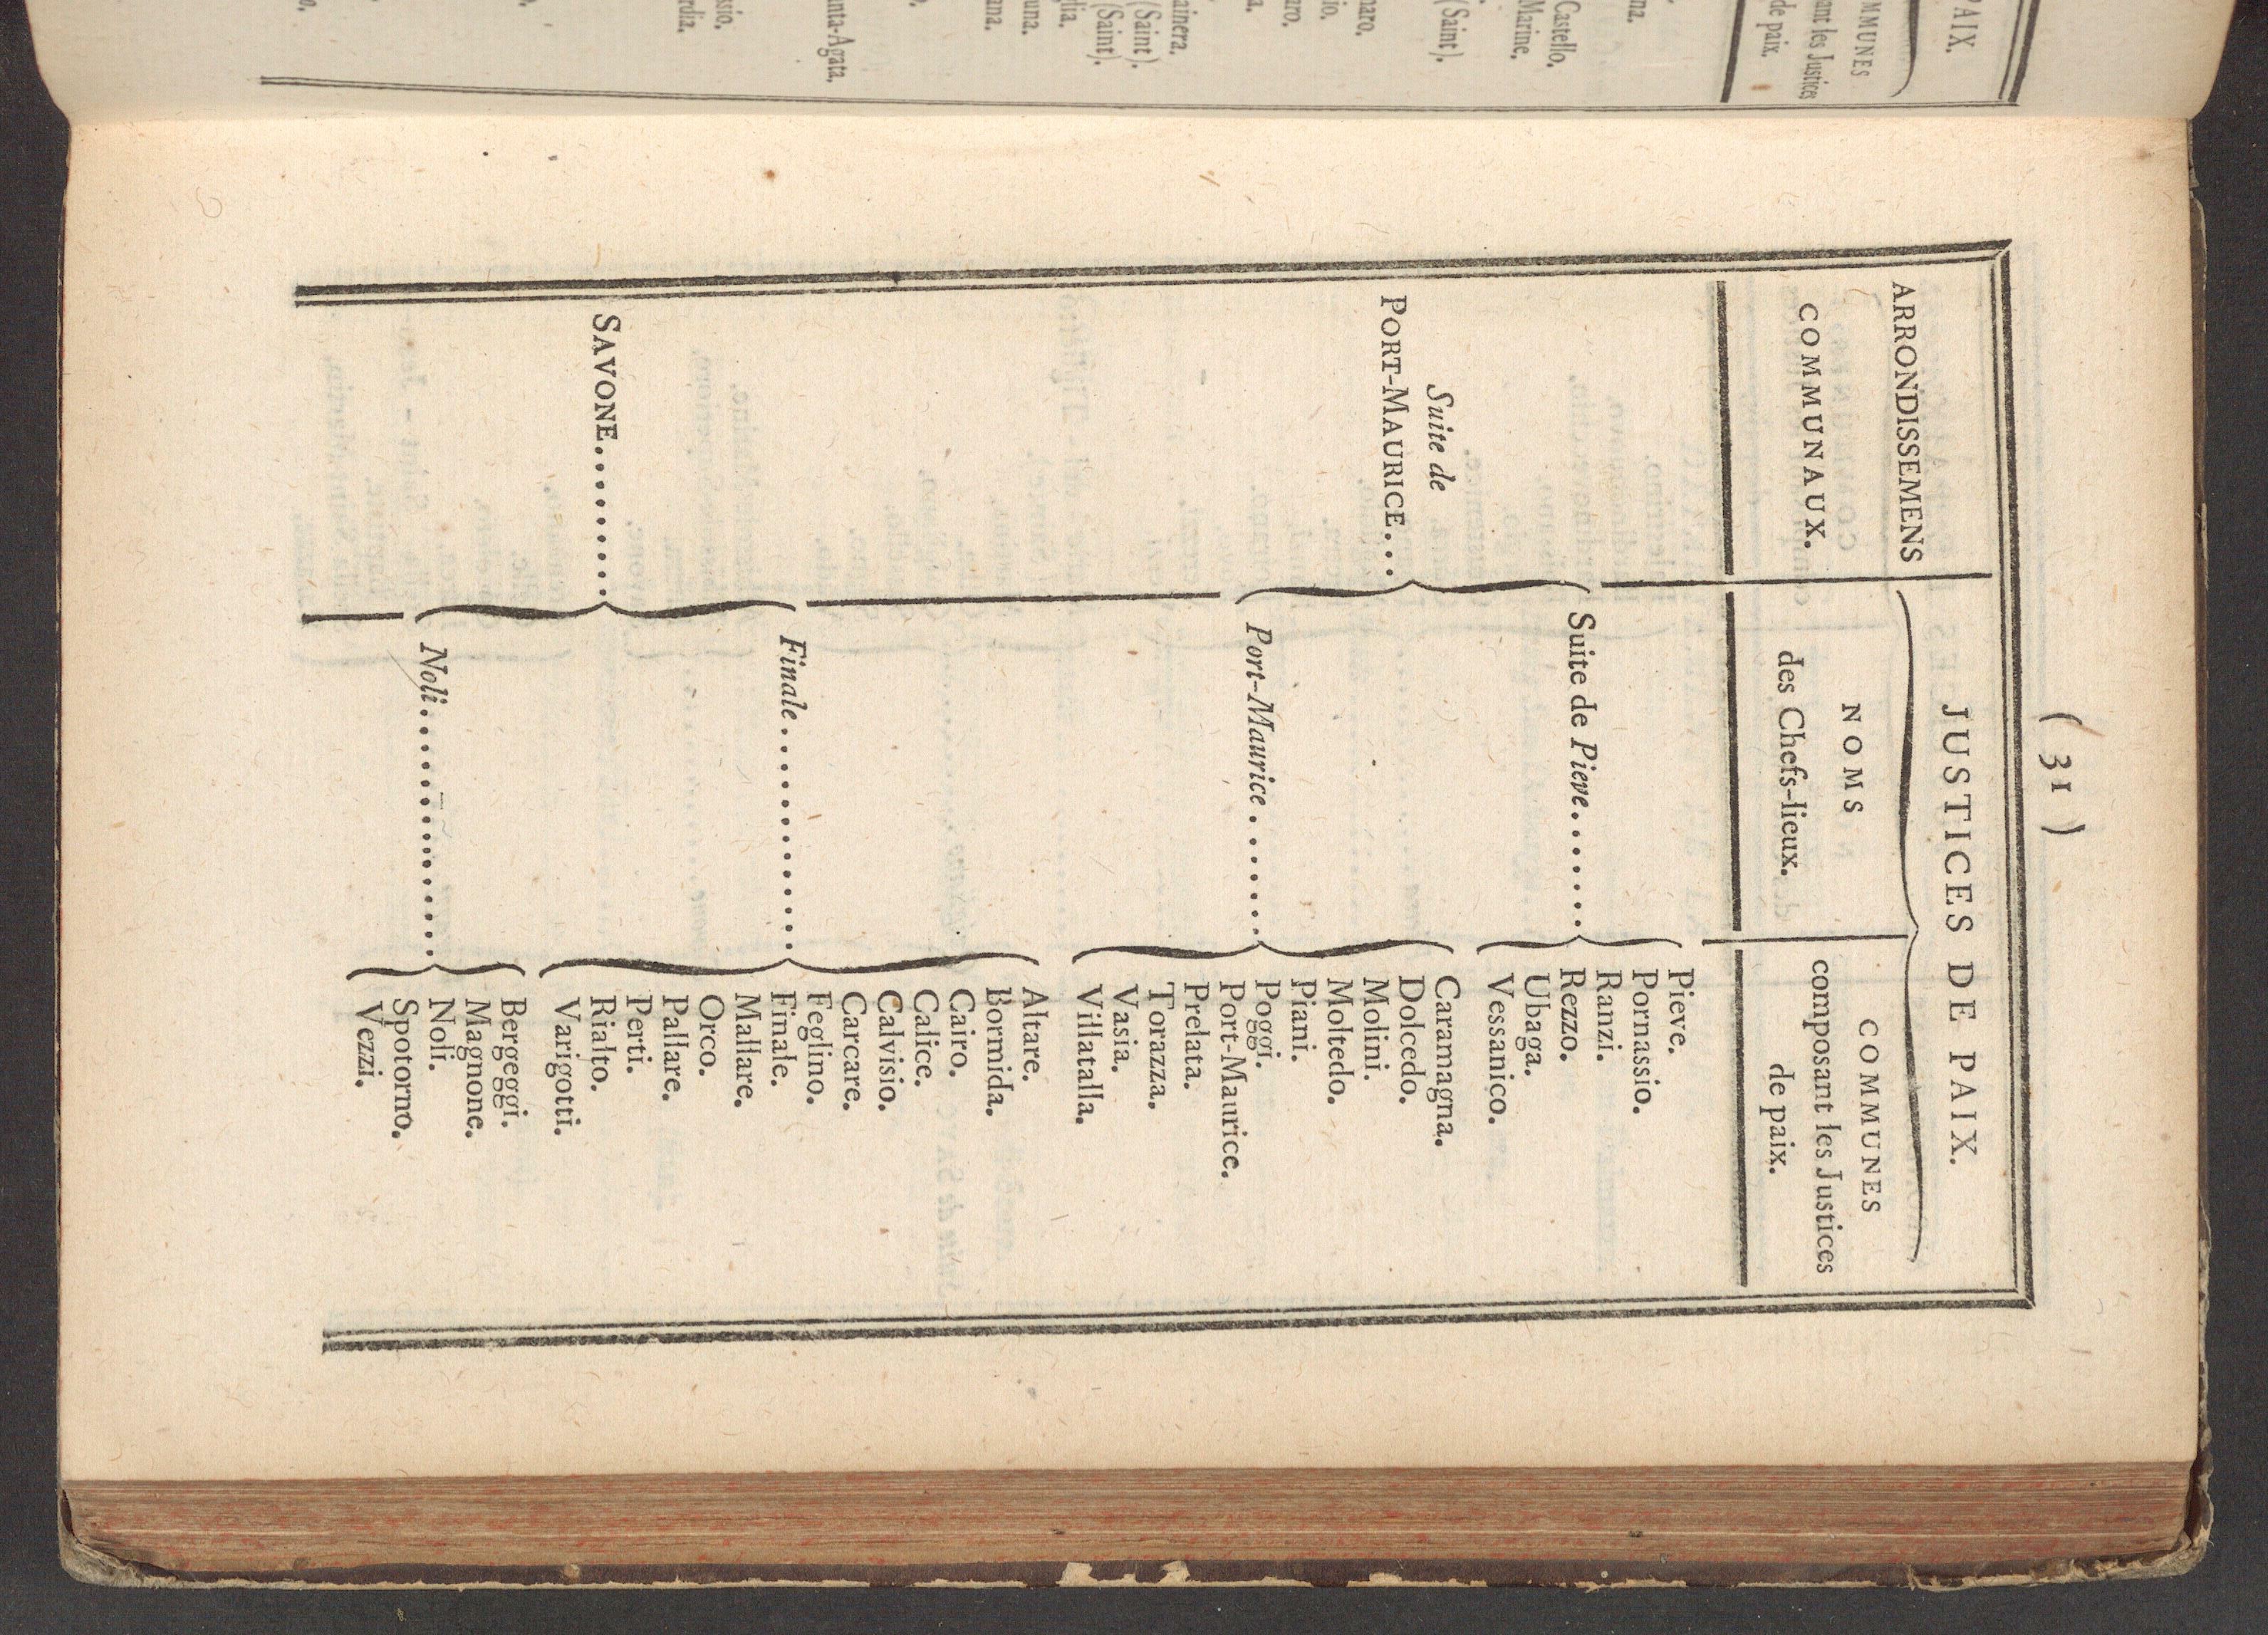 ( 31 )
JUSTICES DE PAIX.
ARRONDISSEMENS
COMMUNAUX.
NOMS
des Chefs-lieux.
COMMUNES
composant les Justices
de paix.
Suite de
PORT-MAURICE...
Suite de Pieve.......
Pieve.
Pornassio.
Ranzi.
Rezzo.
Ubaga.
Vessanico.
Port-Maurice.......
Caramagna.
Dolcedo.
Molini.
Moltedo.
Piani.
Poggi.
Port-Maurice.
Prelata.
Torazza.
Vasia.
Villatalla.
SAVONE.........
Finale.............
Altare.
Bormida.
Cairo.
Calice.
Calvisio.
Carcare.
Feglino.
Finale.
Mallare.
Orco.
Pallare.
Perti.
Rialto.
Varigotti.
Noli..............
Bergeggi.
Magnone.
Noli.
Spotorno.
Vezzi.
PAIX.
ant les Justices
de paix.
Castello.
Marine.
(Saint).
(Saint).
(Saint).
nta-Agata.